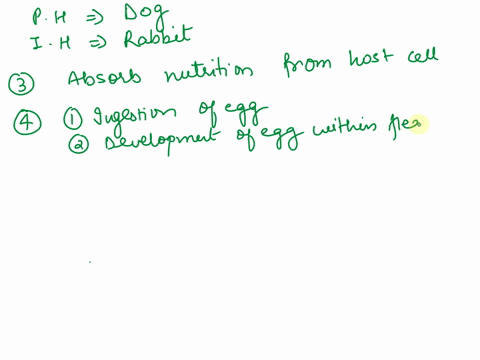 P.H ⇒ Dog
I.H ⇒ Rabbit
③ Absorb nutrition from host cell
④ ① Ingestion of egg
② Development of egg within flea